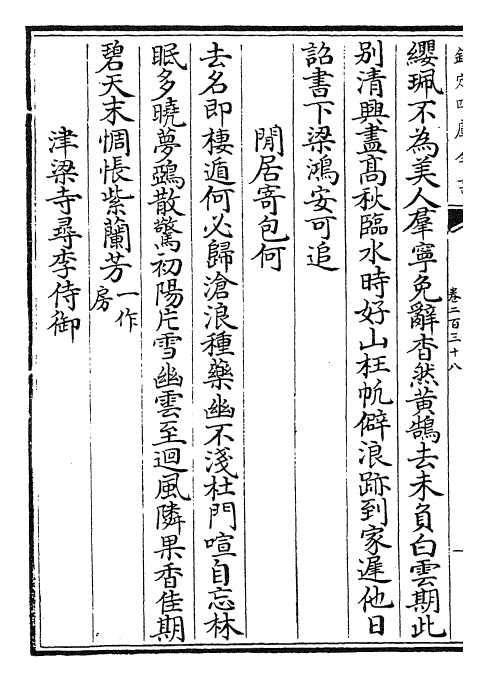 欽定四庫全書
卷二百三十八
纓珮不為美人羣寧免辭杳然黃鵠去未負白雲期此
别清興盡髙秋臨水時好山枉㠶僻浪跡到家遲他日
詔書下梁鴻安可追
閒居寄包何
去名即棲遁何必歸滄浪種藥幽不淺杜門喧自忘林
眠多曉夢鵶散驚初陽片雪幽雲至迴風隣果香佳期
碧天末惆悵紫蘭芳一作房
津梁寺尋李侍御